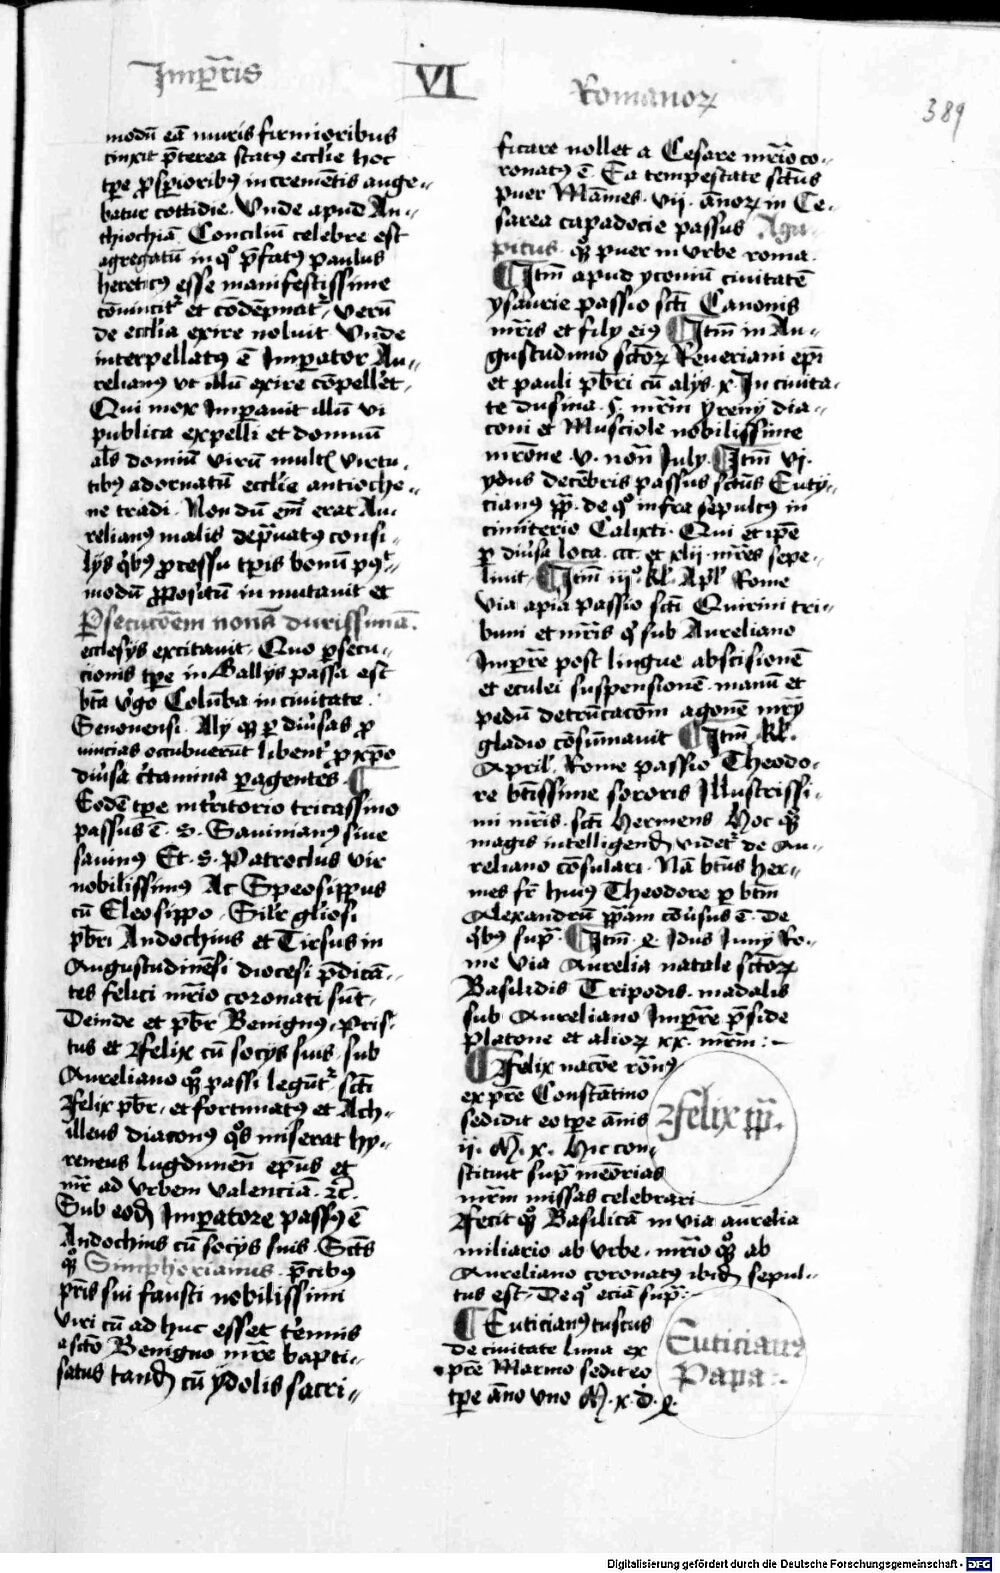 Imꝑr̄is VI Romanoꝝ
389
modū eā muris firmioribus
cinxit p̄terea status eccl̄ie hoc
tp̄e ꝓsꝑioribꝰ incremētis auge-
batur cottidie. Vnde apud An-
thiochiā Conciliū celebre est
agregatū in qͦ p̄fatꝰ paulus
hereticꝰ esse manifestissime
cōuincitʳ et cōdēpnatʳ, verū
de eccl̄ia exire noluit Vnde
interpellatꝰ ē Imperator Au-
relianꝰ vt illū exire cōpellēt.
Qui mox Imꝑauit illū vi
publica expelli et domnū
al̄s domiū virū multꝭ virtu-
tibꝰ adornatū eccl̄ie antioche-
ne tradi. Non dū em̄ erat Au-
relianꝰ malis dep̄uatꝰ consi-
lijs qͥbꝰ ꝓcessu tꝑis bonū pꝰ-
modū ꝓpositū in mutauit et
Persecuc̄oem nonā durissimā.
ecclesijs excitauit. Quo ꝑsecu-
cionis tp̄e in Gallijs passa est
bt̄a v̓go Colūba in ciuitate
Senonensi. Alij qꝫ ꝑ diu̓sas ꝓ
uincias occubuerūt libent̓ ꝓ xp̄o
diu̓sa c̓tamina ꝑagentes. ¶
Eodē tp̄e in t̓ritorio tricassino
passus ē. S. Sauinianꝰ siue
sauinꝰ Et. S. Patroclus vir
nobilissimꝰ Ac Speosippus
cū Eleosippo. Sil̄r gl̄iosi
pb̄ri Andochius et Tirsus in
Augustudinēsi diocesi p̄dicā-
tes felici mr̄io coronati sūt.
Deinde et pb̄r Benignꝰ, pris-
tus et Felix cū socijs suis. sub
Aureliano qꝫ passi legūtʳ sc̄ti
Felix pb̄r. et fortunatꝰ et Ach-
illeus diaconꝰ qͦs miserat hy-
reneus lugdunen̄ ep̄us et
mr̄ ad vrbem valenciā. ⁊c̄.
Sub eod̄ Imꝑatore passꝰ ē
Andochius cū socijs suis. Sc̄ts
qꝫ Simphorianus. p̄cibꝰ
pr̄is sui fausti nobilissimi
viri cū ad huc esset t̓ennis
a sc̄to Benigno mr̄e bapti-
satus tand̄ cū ydolis sacri-
ficare nollet a Cesare mr̄io co-
ronatꝰ ē. Ea tempestate sc̄tus
puer Māmes. vii. ānoꝝ in Ce-
sarea capadocie passus Aga-
pitus. qꝫ puer in vrbe roma.
¶ Itm̄ apud yconiū ciuitatē
ysaurie passio sc̄ti Canonis
mr̄is et filij eiꝰ ¶ Itm̄ in Au-
gustuduno sc̄toꝝ Reueriani ep̄i
et pauli pb̄ri cū alijs. x. In ciuita-
te dusina. s. mr̄m yrenij dia-
coni et Musciole nobilissime
mr̄one. v. non̄ July. ¶ Itm̄ vj.
ydus decēbris passus sc̄tus Euty-
cianꝰ pp̄. de qͦ infra sepultꝰ in
cimiterio Calixti. Qui et ip̄e
ꝑ diu̓sa loca. ccc. et xlij. mr̄es sepe-
liuit ¶ Itm̄ iijͦ. kl̄. Apl̄ Rome
via apia passio sc̄ti Quirini tri-
buni et mr̄is qͥ sub Aureliano
Imꝑr̄e post lingue abscisionē
et eculei suspensionē. manū et
pedū detrūcac̄om agonē mr̄ij
gladio cōsūmauit ¶ Itm̄ kl̄.
April̄. Rome passio Theodo-
re bt̄issime sororis Illustrissi-
mi mr̄is. sc̄ti Hermens Hoc qꝫ
magis intelligend̄ videtʳ de Au-
reliano cōsulari. Nā bt̄us her-
mes fr̄ huiꝰ Theodore ꝑ bt̄m
Alexandrū pp̄am cōu̓sus ē. De
qͥbꝰ supͣ. ¶ Itm̄. x. Idus Junij Ro-
me via Aurelia natale sc̄toꝝ
Basilidis Tripodis. madalis
sub Aureliano Imꝑr̄e p̄side
platone et alioꝝ xx. mr̄m:-
¶ Felix nac̄oe ro̅nꝰ
ex pr̄e Constātino
sedidit eo tp̄e ānis
ij. M. x. Hic con-
stituit supͣ mēorias
mr̄m missas celebrari
Fecit qꝫ Basilicā in via aurelia
miliario ab vrbe. mr̄io qꝫ ab
Aureliano coronatꝰ ibid̄ sepul-
tus est. De qͦ eciā supͣ.
Felix pp̄.
¶ Euticianꝰ tuscus
de ciuitate luna ex
pr̄e Marino sedit eo
tp̄e āno vno M. x. d. x.
Euticianꝰ
Papa:.
Digitalisierung gefördert durch die Deutsche Forschungsgemeinschaft - DFG